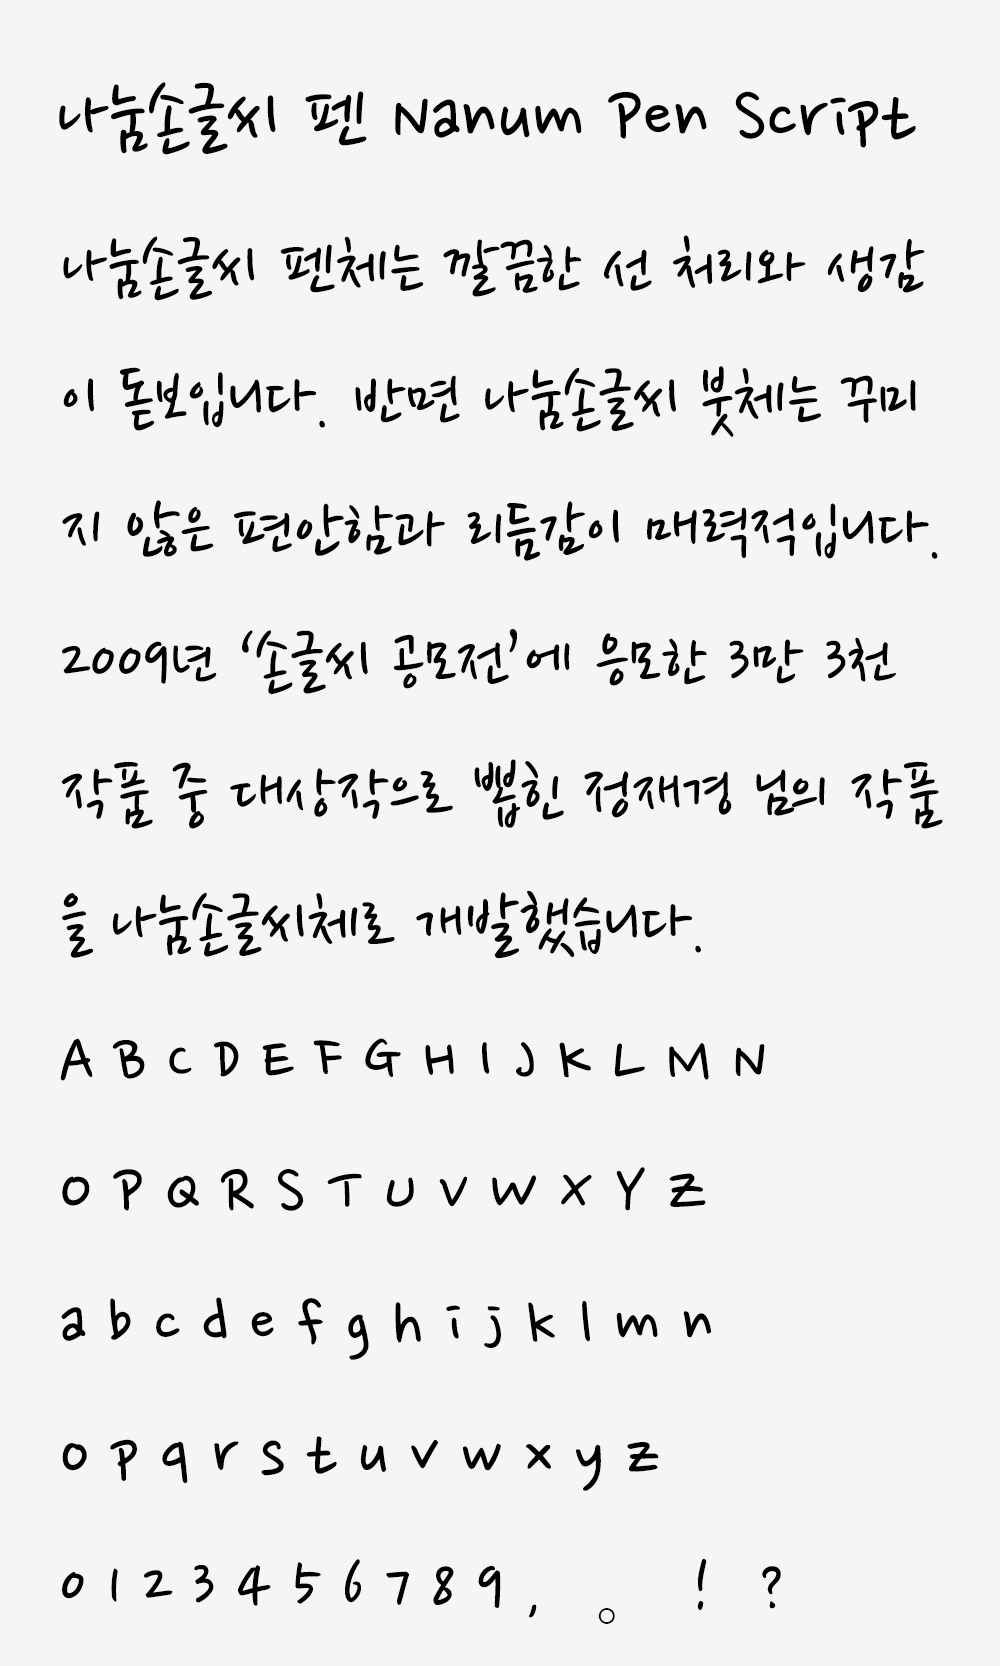 나눔손글씨 펜 Nanum Pen Script
나눔손글씨 펜체는 깔끔한 선 처리와 생감
이 돋보입니다. 반면 나눔손글씨 붓체는 꾸미
지 않은 편안함과 리듬감이 매력적입니다.
2009년 ‘손글씨 공모전’에 응모한 3만 3천
작품 중 대상작으로 뽑힌 정재경 님의 작품
을 나눔손글씨체로 개발했습니다.
A B C D E F G H I J K L M N
O P Q R S T U V W X Y Z
a b c d e f g h i j k l m n
o p q r s t u v w x y z
0 1 2 3 4 5 6 7 8 9 , 。 ! ?